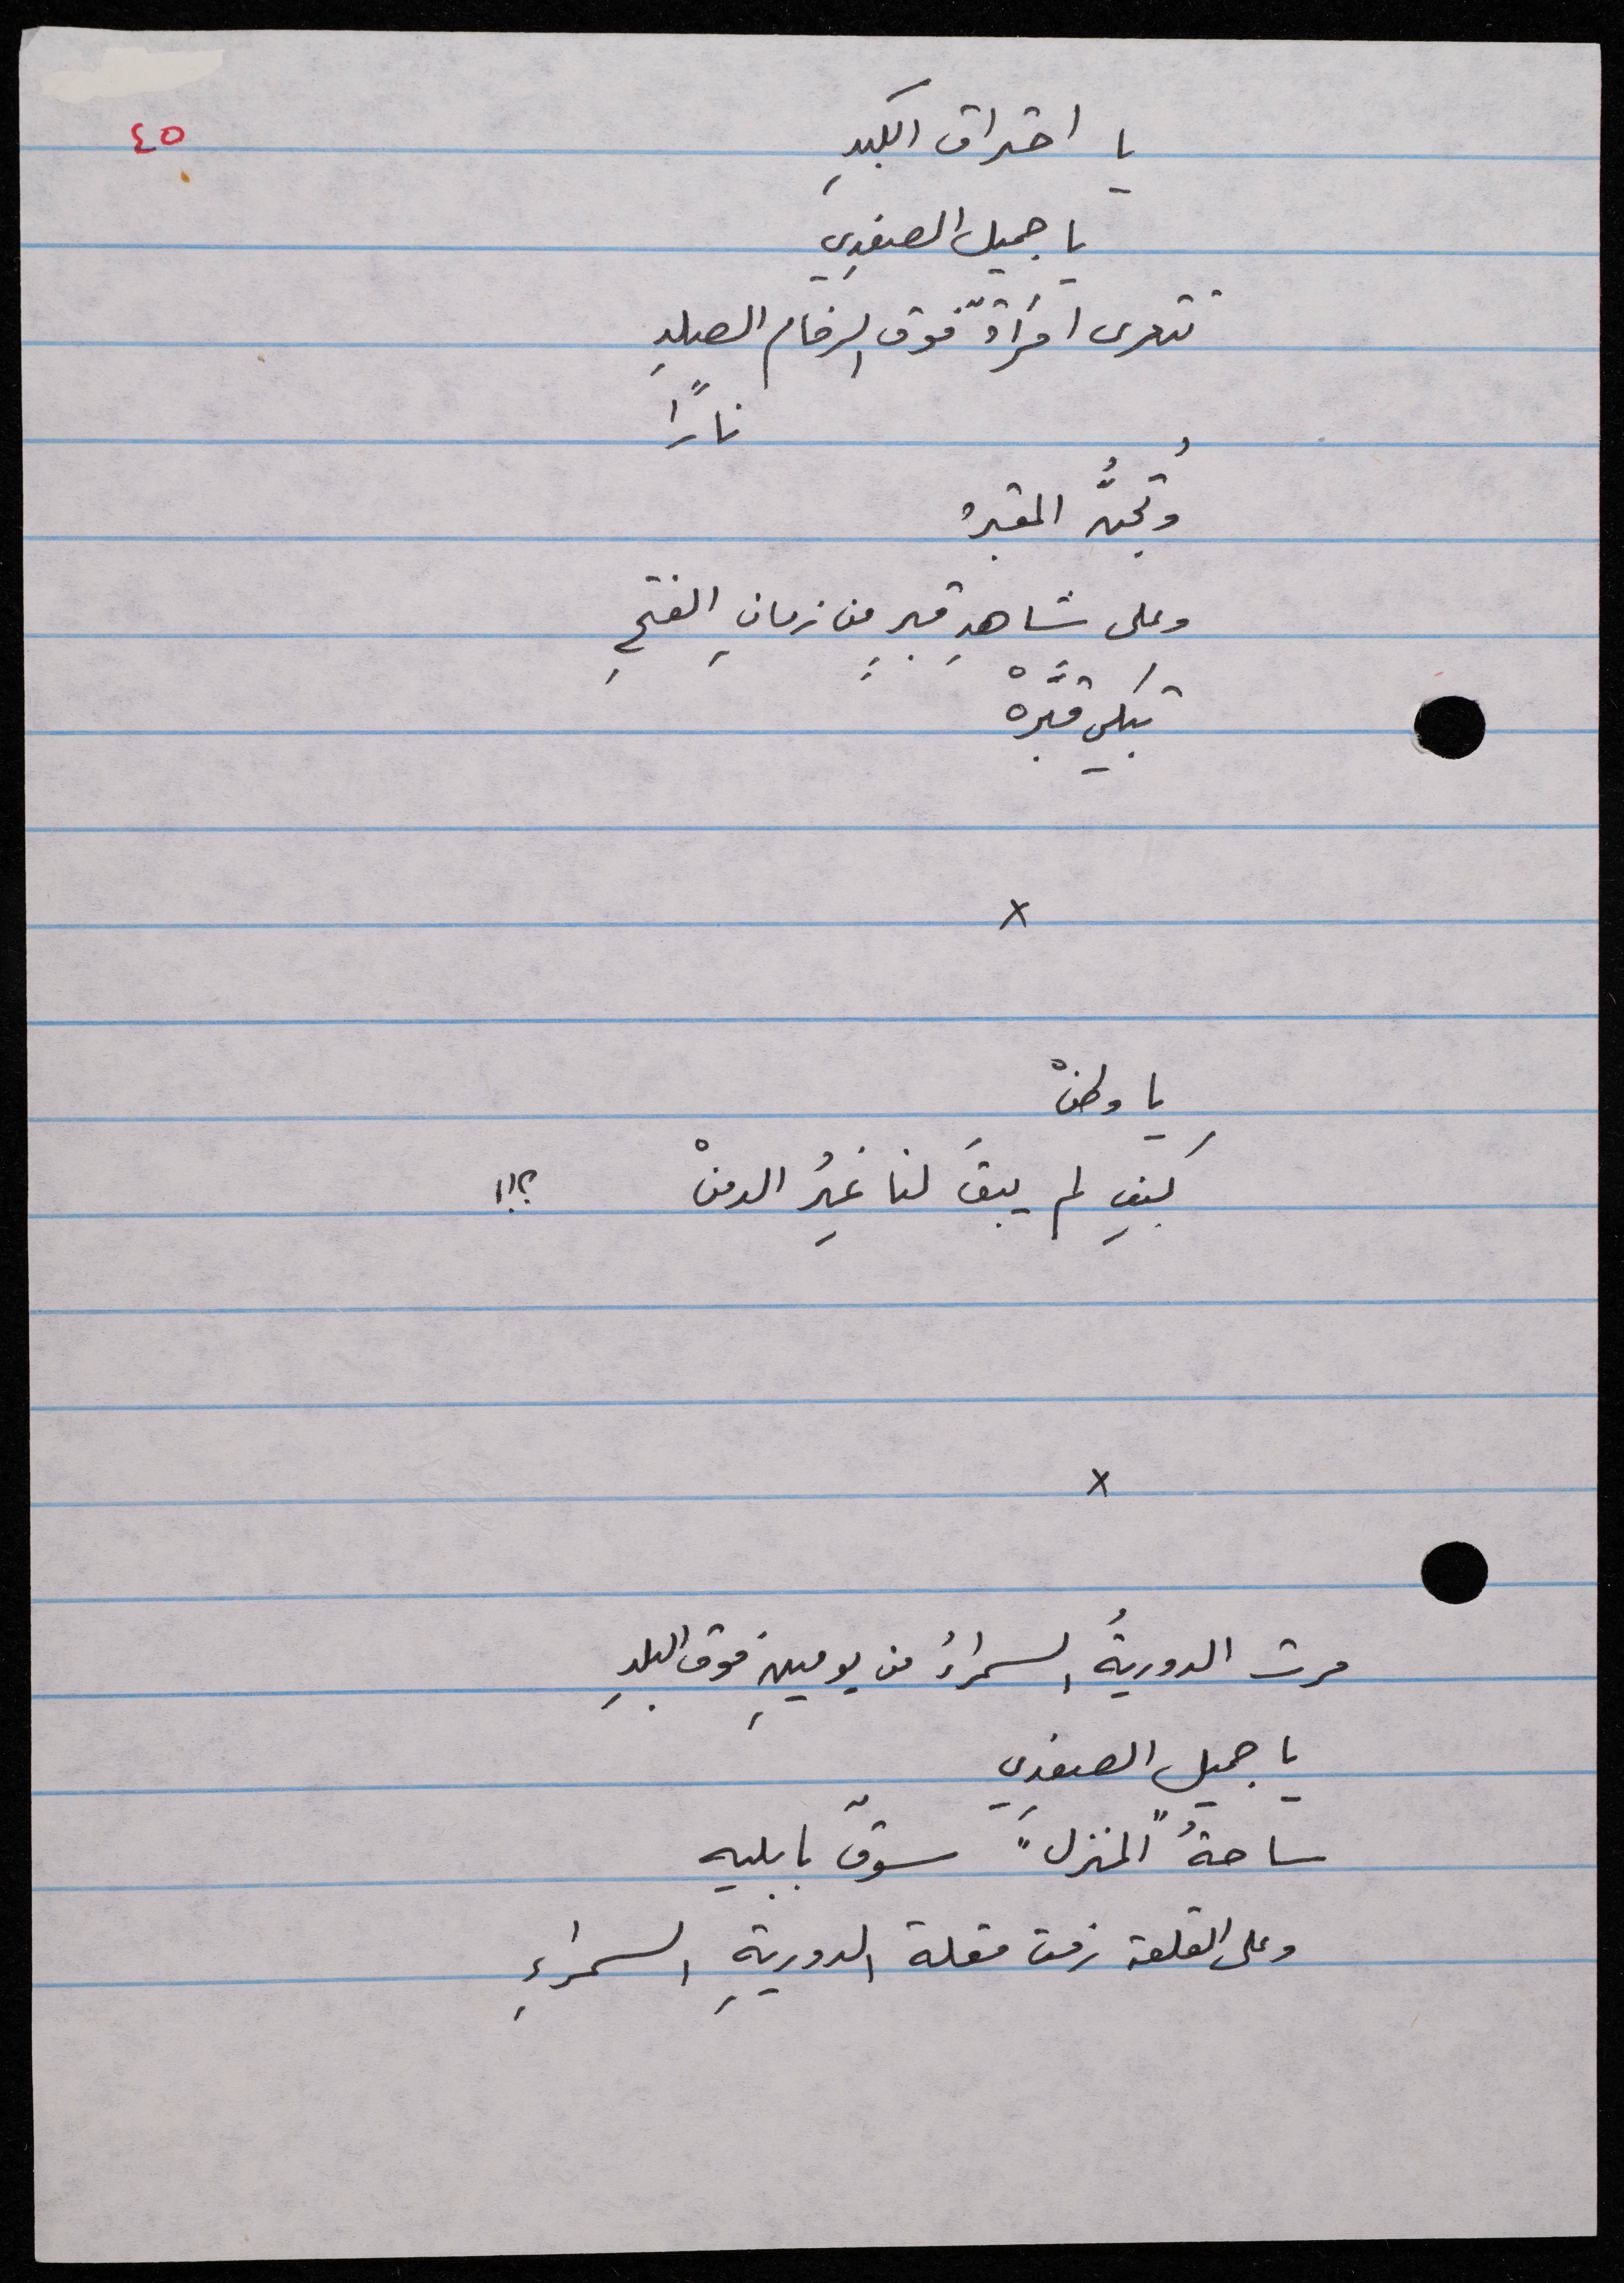 ٤٥
يا احتراق الكبدِ
يا جميل الصفدِي
تتعرى امرأةٌ فوق الرخام الصلدِ
نارًا
وتُجنُّ المقبرهْ
وعلى شاهدِ قبرٍ من زمانِ الفتحِ
تبكي قبَّرهْ
x
يا وطنْ
كيفِ لم يبقَ لنا غيرُ الدمنْ ؟!!
x
مرت الدوريةُ السمراءُ من يومينِ فوق البلدِ
يا جميل الصفدِي
ساحةُ "المنزلِ" سوقٌ بابليه
وعلى القلعة زمت مقلة الدوريةِ السمراءِ